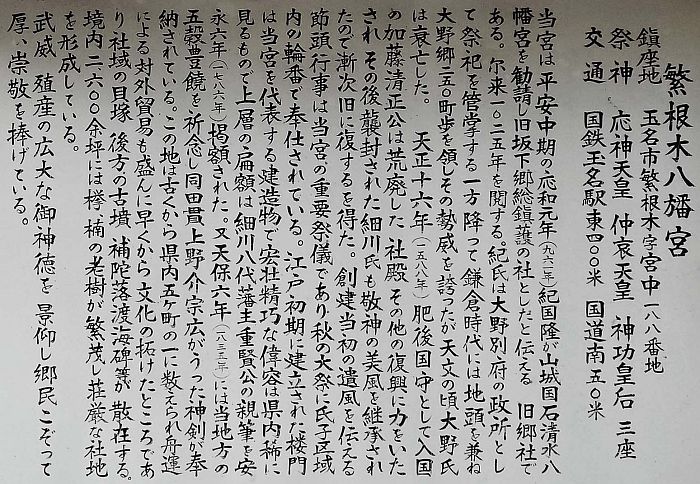 繁根木八幡宮
鎮座地　玉名市繁根木字宮中一八八番地
祭神　応神天皇　仲哀天皇　神功皇后　三座
交通　国鉄玉名駅東四〇〇米　国道南五〇米
当宮は平安中期の応和元年(九六一年)紀国隆が山城国石清水八
幡宮を勧請し旧坂下郷総鎮護の社としたと伝える　旧郷社で
ある。尓来一〇二五年を閲する。紀氏は大野別府の政所とし
て祭祀を管掌する一方降って鎌倉時代には地頭を兼ね
大野郷二五〇町歩を領しその勢威を誇ったが天文の頃大野氏
は衰亡した。　天正十六年(一五八八年)肥後国守として入国
の加藤清正公は荒廃した社殿その他の復興に力をいた
され、その後襲封された細川氏も敬神の美風を継承され
たので漸次旧に復するを得た。創建当初の遺風を伝える
節頭行事は当宮の重要祭儀であり秋の大祭に氏子区域
内の輪番で奉仕されている。江戸初期に建立された楼門
は当宮を代表する建造物で宏壮精巧な偉容は県内稀に
見るもので上層の扁額は細川八代藩主重賢公の親筆を安
永六年(一七八六年)掲額された。又天保六年(一八三五年)には当地方の
五穀豊饒を祈念し同田貫上野介宗広がうった神剣が奉
納されている。この地は古くから県内五ヶ町の一に数えられ舟運
による対外貿易も盛んに早くから文化の拓けたところであ
り社域の貝塚　後方の古墳　補陀落渡海碑等が散在する。
境内二六〇〇余坪には欅、楠の老樹が繁茂し荘厳な社地
を形成している。
武威　殖産の広大な御神徳を景仰し郷民こぞって
厚い崇敬を捧げている。